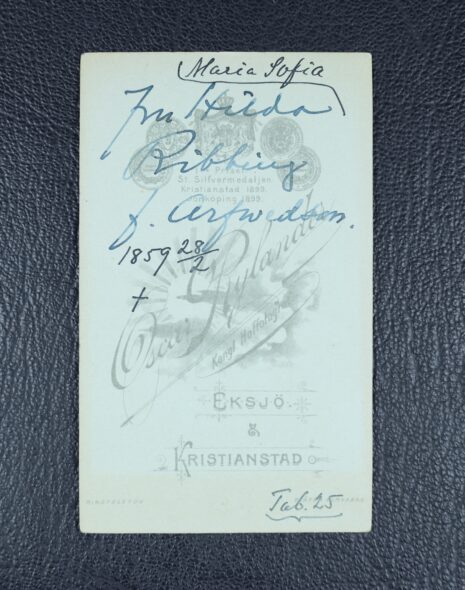 Maria Sofia
Fru Hilda
Ribbing
f. Arfwedson.
Priser
St. Silfvermedaljen
Kristianstad 1899.
Jönköping 1899.
1859 28/2
+
Oscar Rylander
Kongl. Hoffotograf
EKSJÖ.
&
KRISTIANSTAD
Tab. 25